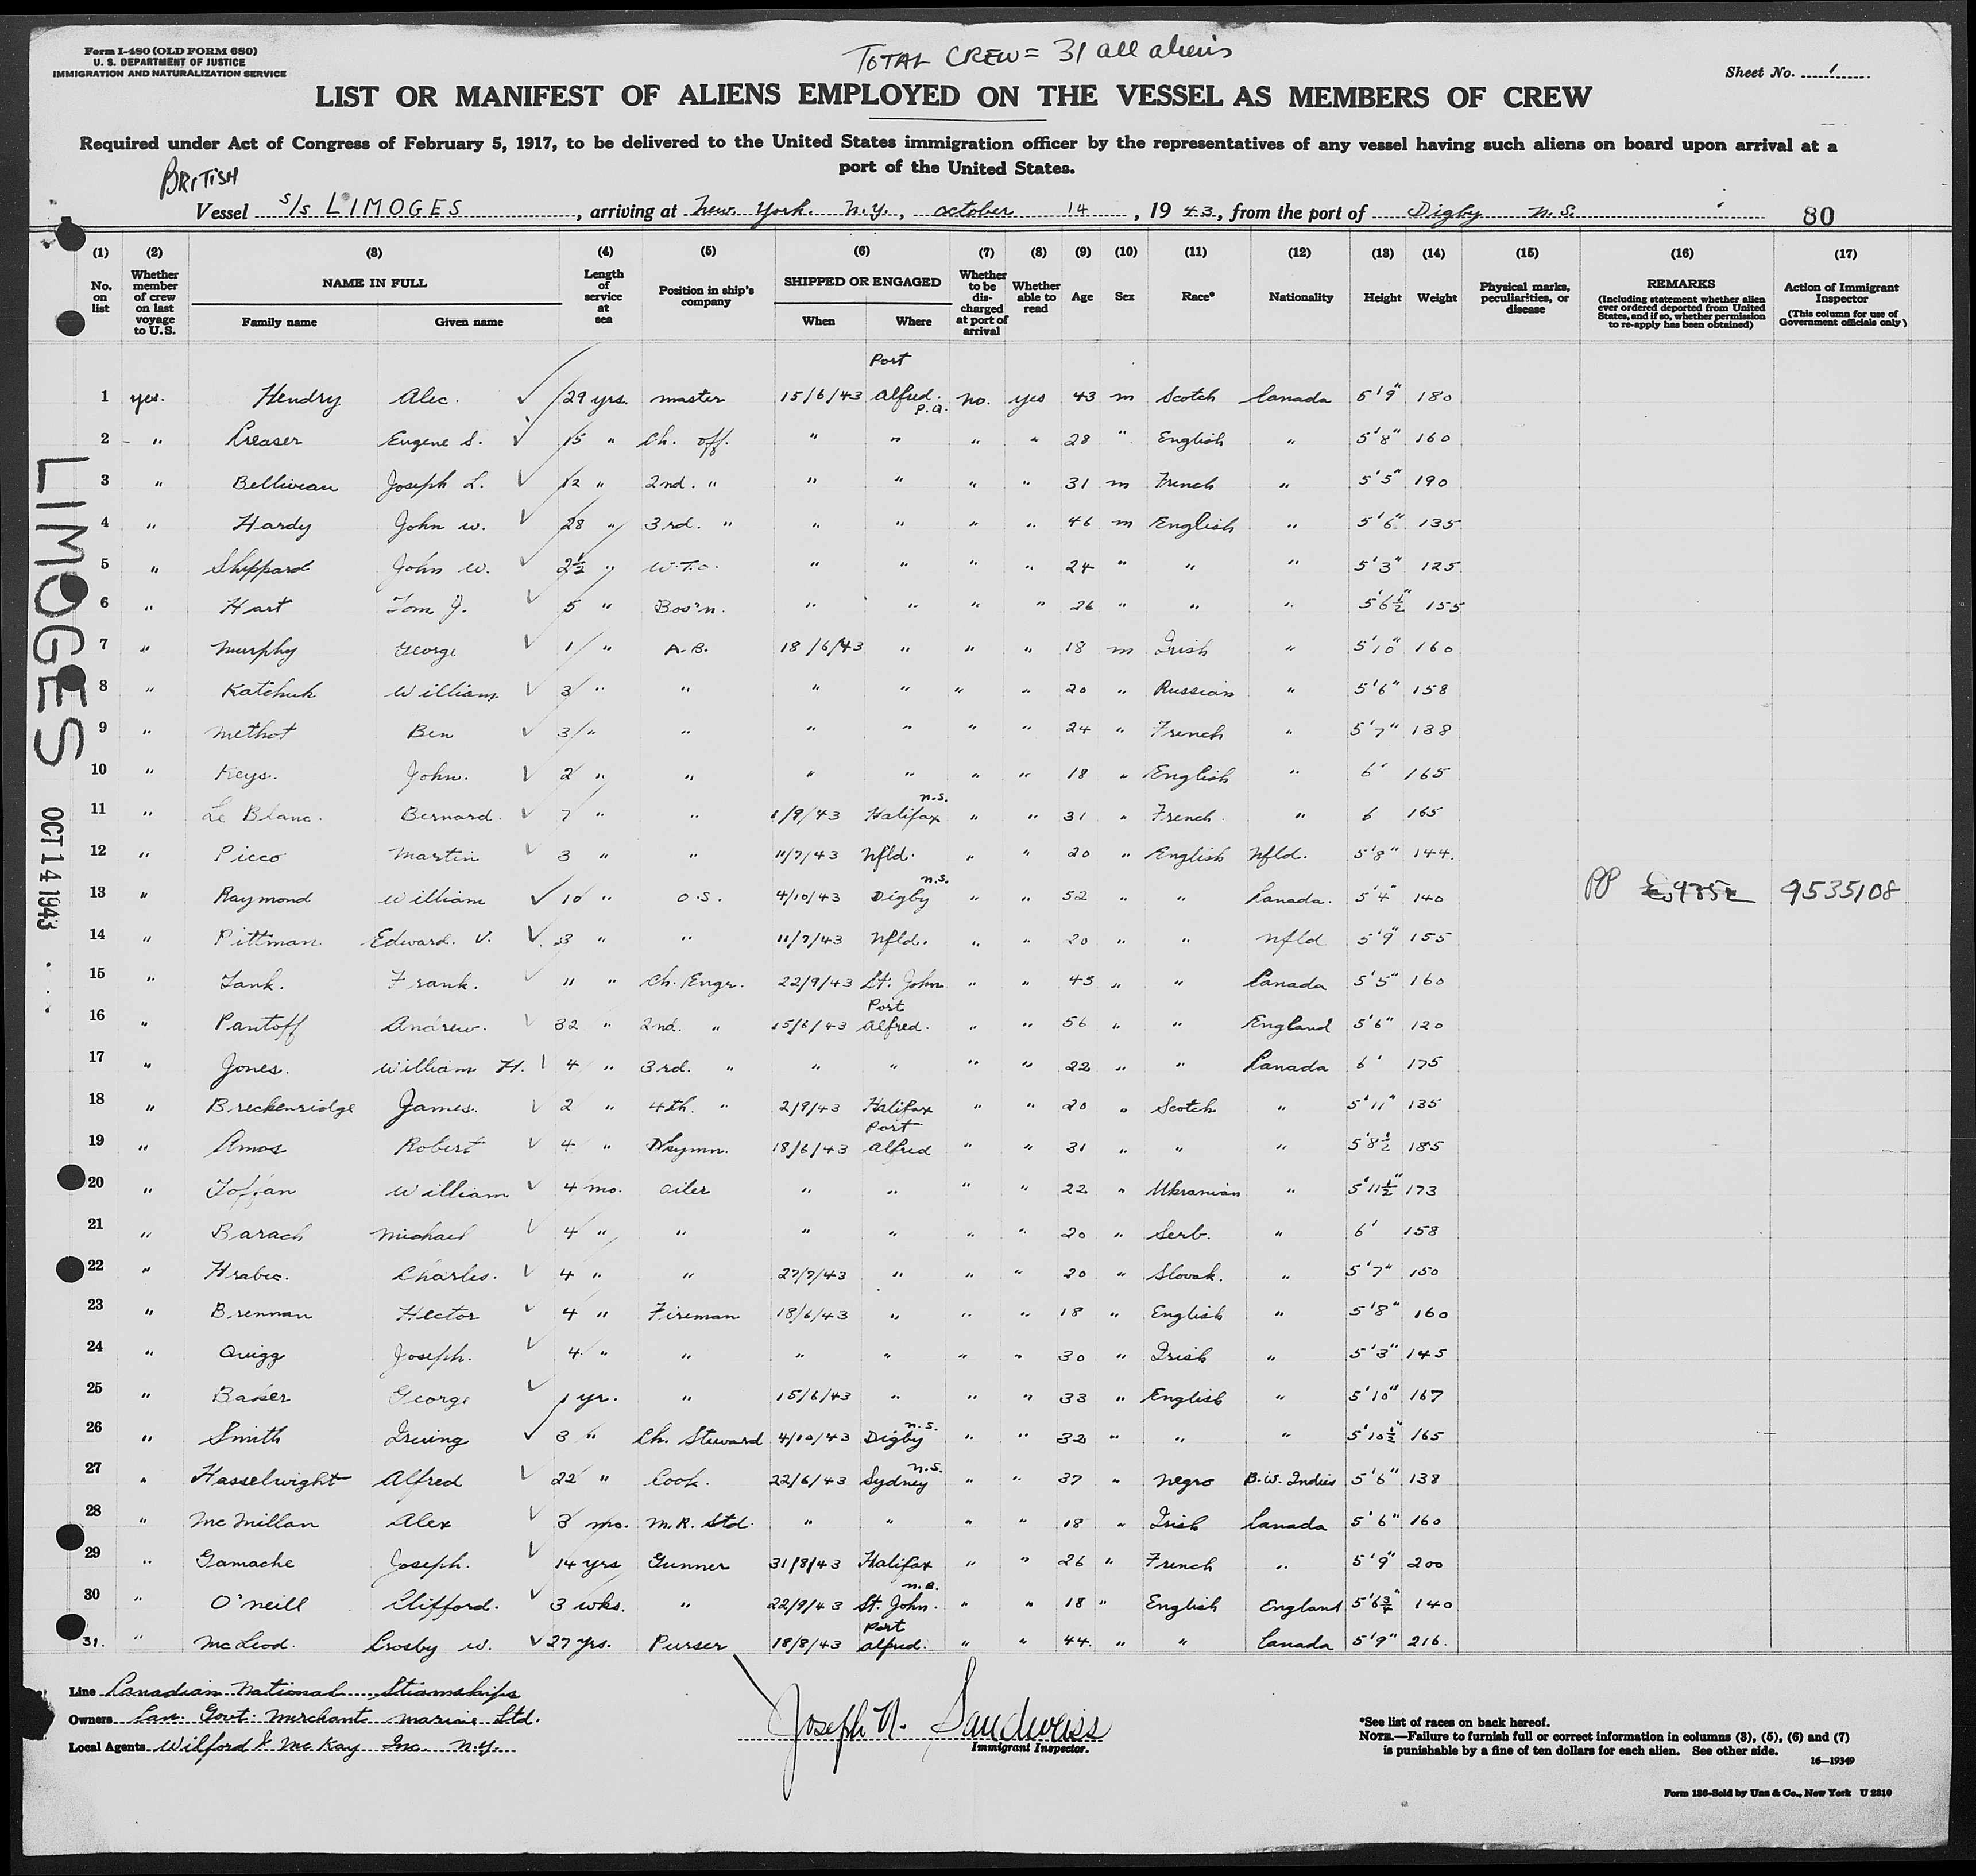 Form I-480 (OLD FORM 680)
U. S. DEPARTMENT OF JUSTICE
IMMIGRATION AND NATURALIZATION SERVICE
TOTAL CREW = 31 all aliens
Sheet No. 1
LIST OR MANIFEST OF ALIENS EMPLOYED ON THE VESSEL AS MEMBERS OF CREW
Required under Act of Congress of February 5, 1917, to be delivered to the United States immigration officer by the representatives of any vessel having such aliens on board upon arrival at a
port of the United States.
BRITISH
Vessel s/s LIMOGES, arriving at New York. N.Y., october 14, 1943, from the port of Digby N.S. 80
(1) (2) (3) (4) (5) (6) (7) (8) (9) (10) (11) (12) (13) (14) (15) (16) (17)
No. on list
Whether member of crew on last voyage to U.S.
NAME IN FULL
Family name Given name
Length of service at sea
Position in ship's company
SHIPPED OR ENGAGED
When Where
Whether to be discharged at port of arrival
Whether able to read
Age Sex Race* Nationality Height Weight
Physical marks, peculiarities, or disease
REMARKS
(Including statement whether alien ever ordered deported from United States, and if so, whether permission to re-apply has been obtained)
Action of Immigrant Inspector
(This column for use of Government officials only)
1 yes. Hendry Alec. ✓ 29 yrs. master 15/6/43 Port Alfred. P.Q. no. yes 43 m Scotch Canada 5'9" 180
2 " Creaser Eugene S. ✓ 15 " Ch. off. " " " " 28 " English " 5'8" 160
3 " Bellivean Joseph L. ✓ 12 " 2nd. " " " " " 31 m French " 5'5" 190
4 " Hardy John W. ✓ 28 " 3rd. " " " " " 46 m English " 5'6" 135
5 " Shippard John W. ✓ 2½ " W.T.O. " " " " 24 " " " 5'3" 125
6 " Hart Tom J. ✓ 5 " Bos'n. " " " " 26 " " " 5'6½" 155
7 " Murphy George ✓ 1 " A.B. 18/6/43 " " " 18 m Irish " 5'10" 160
8 " Katchuk William ✓ 3 " " " " " " 20 " Russian " 5'6" 158
9 " Methot Ben ✓ 3 " " " " " " 24 " French " 5'7" 138
10 " Keys. John. ✓ 2 " " " " " " 18 " English " 6' 165
11 " Le Blanc. Bernard. ✓ 7 " " 1/9/43 Halifax N.S. " " 31 " French. " 6 165
12 " Picco Martin ✓ 3 " " 11/7/43 Nfld. " " 20 " English Nfld. 5'8" 144.
13 " Raymond William ✓ 10 " O.S. 4/10/43 Digby N.S. " " 52 " " Canada. 5'4" 140 PP 9535108
14 " Pittman Edward. V. ✓ 3 " " 11/7/43 Nfld. " " 20 " " Nfld 5'9" 155
15 " Tank. Frank. ✓ 11 " Ch. Engr. 22/9/43 St. John " " 45 " " Canada 5'5" 160
16 " Pantoff Andrew. ✓ 32 " 2nd. " 15/6/43 Port Alfred. " " 56 " " England 5'6" 120
17 " Jones. William H. 4 " 3rd. " " " " " 22 " " Canada 6' 175
18 " Breckenridge James. ✓ 2 " 4th. " 2/9/43 Halifax " " 20 " Scotch " 5'11" 135
19 " Amos Robert ✓ 4 " Dkymn. 18/6/43 Port Alfred " " 31 " " " 5'8½ 185
20 " William ✓ 4 mo. Oiler " " " " 22 " Ukranian " 5'11½" 173
21 " Barach Michael ✓ 4 " " " " " " 20 " Serb. " 6' 158
22 " Hrabec. Charles. ✓ 4 " " 27/7/43 " " " 20 " Slovak. " 5'7" 150
23 " Brennan Hector ✓ 4 " Fireman 18/6/43 " " " 18 " English " 5'8" 160
24 " Quigg Joseph. ✓ 4 " " " " " " 30 " Irish " 5'3" 145
25 " Baker George ✓ 1 yr. " 15/6/43 " " " 33 " English " 5'10" 167
26 " Smith Irving ✓ 3 " Ch. Steward 4/10/43 Digby N.S. " " 32 " " " 5'10½" 165
27 " Hasselwight Alfred ✓ 22 " Cook. 22/6/43 Sydney N.S. " " 37 " Negro B.W. Indies 5'6" 138
28 " McMillan Alex ✓ 3 mo. M.R. Std. " " " " 18 " Irish Canada 5'6" 160
29 " Gamache Joseph. ✓ 14 yrs Gunner 31/8/43 Halifax " " 26 " French " 5'9" 200
30 " O'neill Clifford. ✓ 3 wks. " 22/9/43 St. John. N.B. " " 18 " English England 5'6¾" 140
31. " McLeod. Crosby W. ✓ 27 yrs. Purser 18/8/43 Port Alfred. " " 44. " " Canada 5'9" 216.
LIMOGES OCT 14 1943
Line Canadian National Steamships
Owners Can. Govt. Merchant Marine Ltd.
Local Agents Wilford & McKay Inc. N.Y.
Joseph N. Sandweiss
Immigrant Inspector.
*See list of races on back hereof.
NOTE.—Failure to furnish full or correct information in columns (3), (5), (6) and (7)
is punishable by a fine of ten dollars for each alien. See other side.
16—19349
Form 186-Sold by Unz & Co., New York U 2310